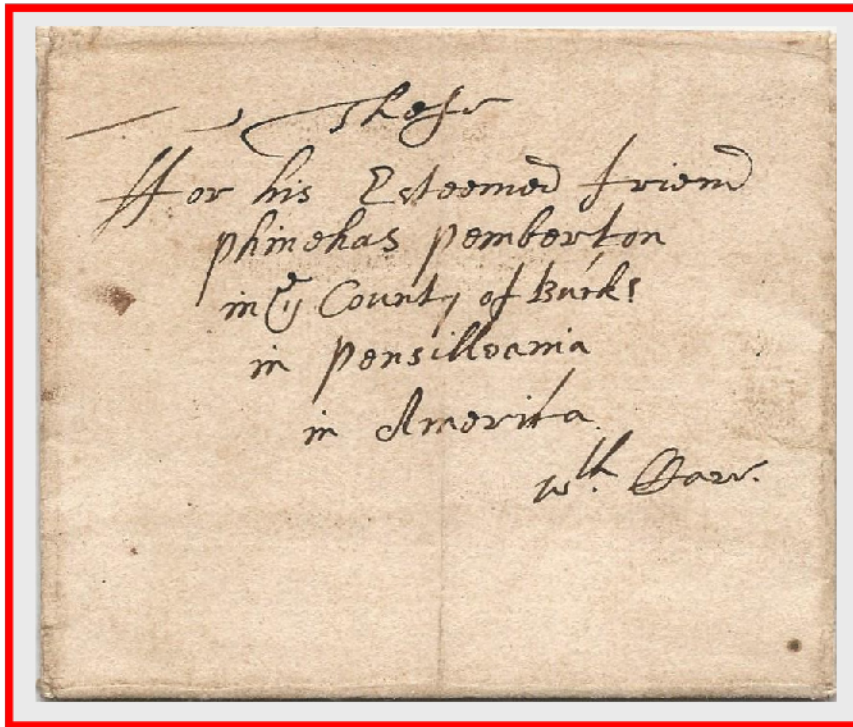 These
ffor his Esteemed friend
phinehas pemberton
in ye County of Bucks
in pensilvania
in America
wth Care.